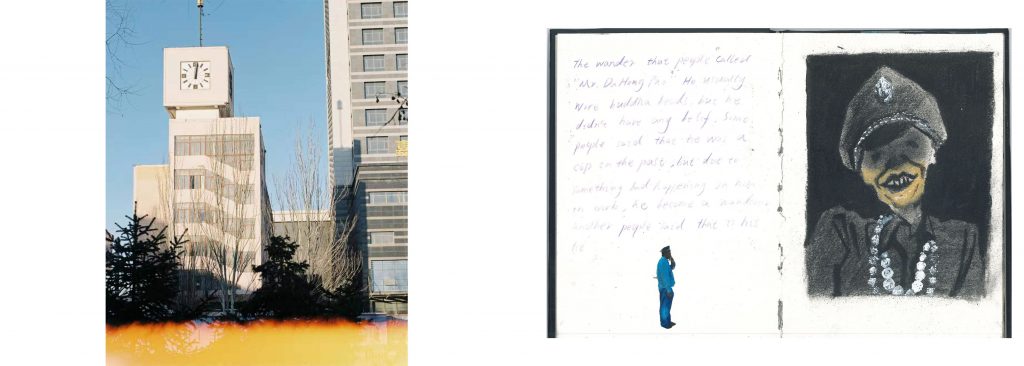 the wander that people "called
"Mr. DaHong Pao" He usually
wore buddha beads, but he
didn't have any
people said that he was a
cop in the past, but due to
something bad happening
he became a
another people said that
lie